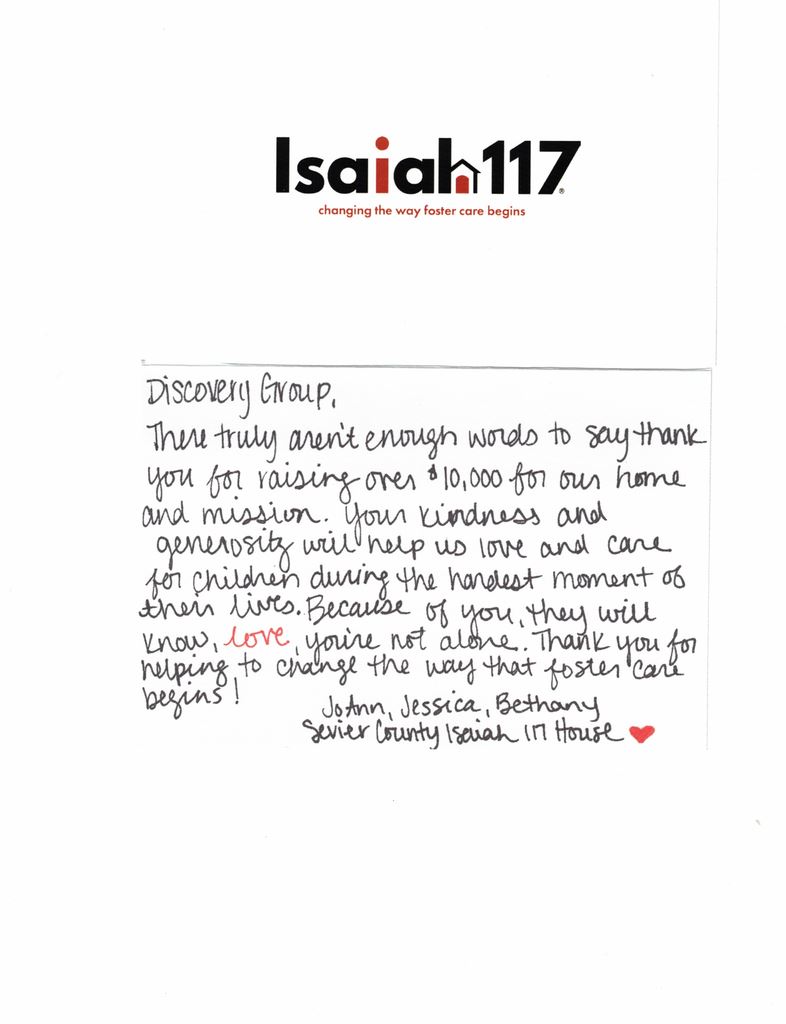 Isaiah117®
changing the way foster care begins
Discovery Group,
There truly aren't enough words to say thank
you for raising over $10,000 for our home
and mission. Your kindness and
generosity will help us love and care
for children during the hardest moment of
their lives. Because of you, they will
know, love, you're not alone. Thank you for
helping to change the way that foster care
begins!
JoAnn, Jessica, Bethany
Sevier County Isaiah 117 House